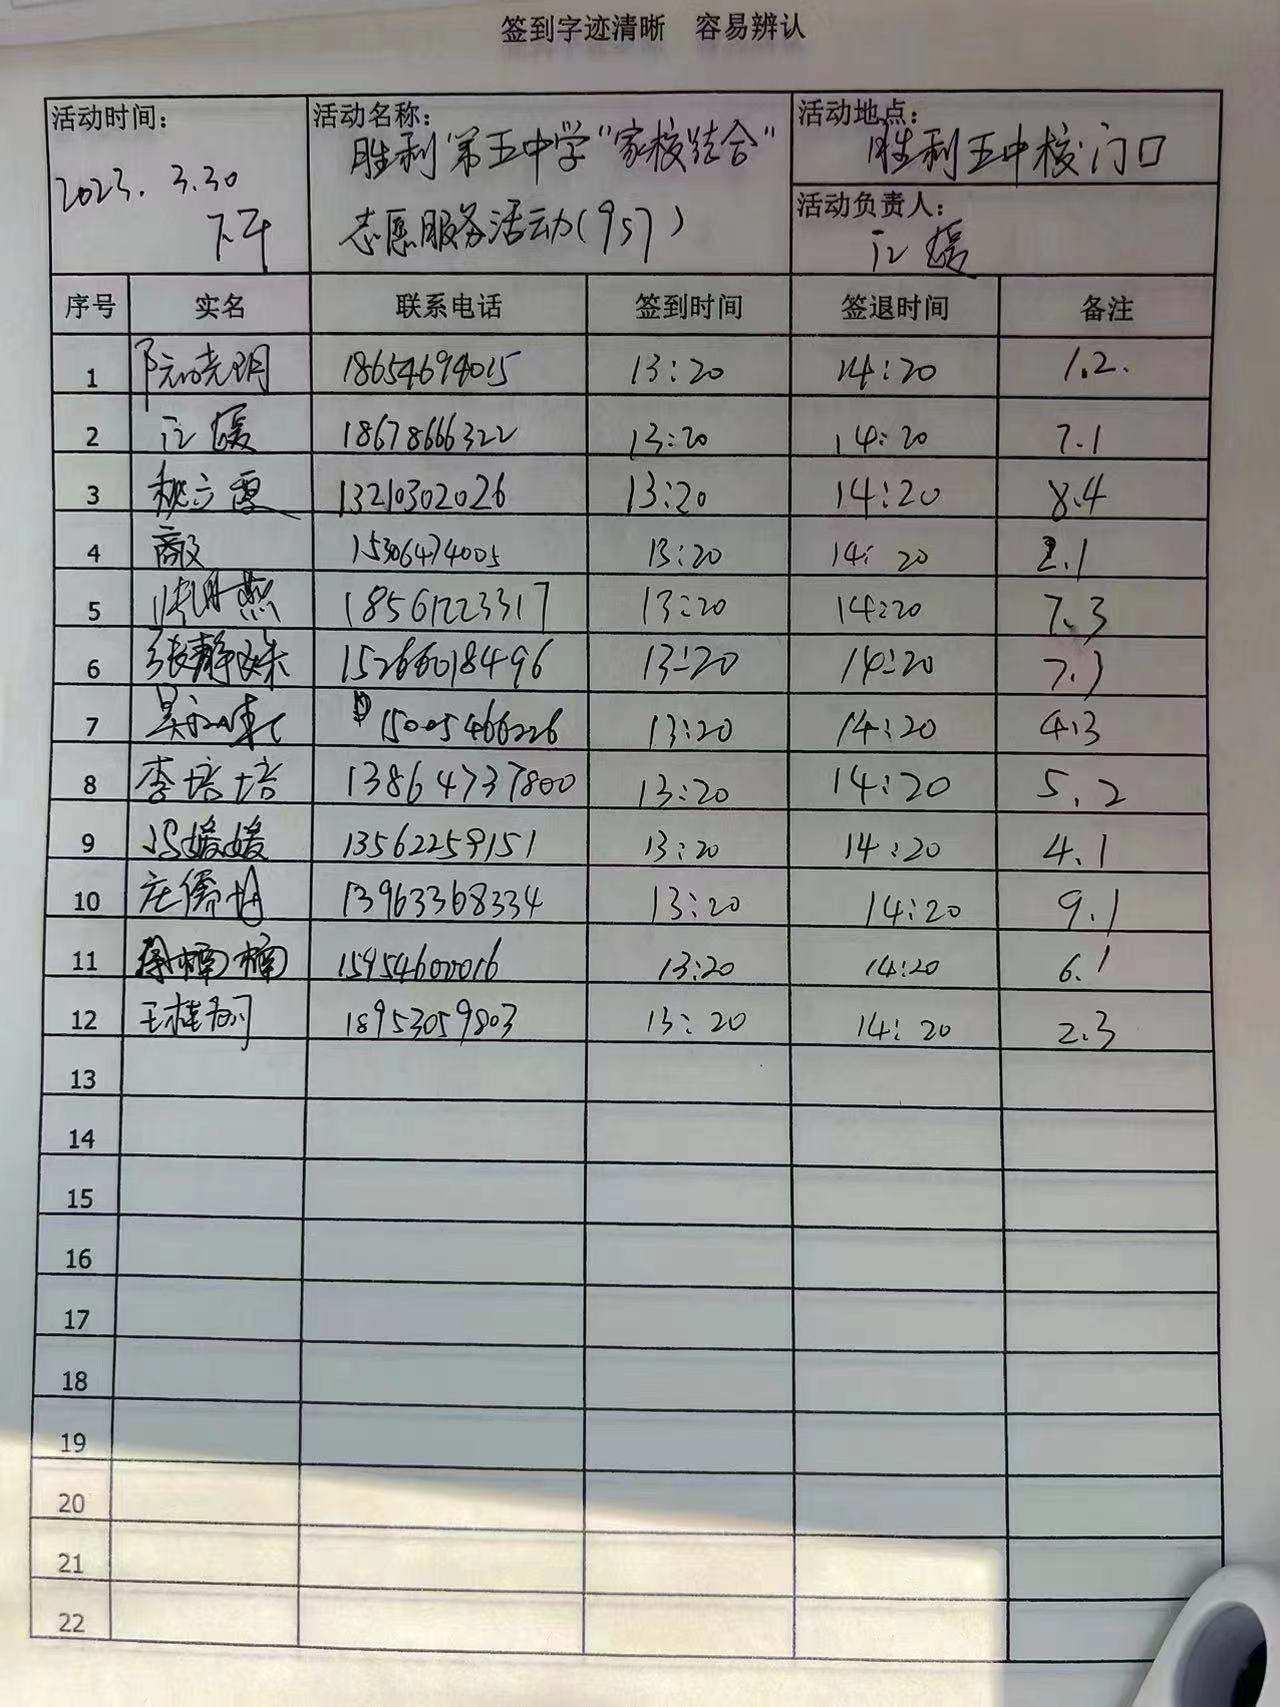 签到字迹清晰 容易辨认
活动时间: 2023. 3.30 下午
活动名称: 胜利第五中学"家校结合"
志愿服务活动(957)
活动地点: 胜利五中校门口
活动负责人: 江媛
序号 实名 联系电话 签到时间 签退时间 备注
1 阮晓明 18654694015 13:20 14:20 1.2.
2 江媛 18678666322 13:20 14:20 7.1
3 姚立霞 13210302026 13:20 14:20 8.4
4 15306474005 13:20 14:20 2.1
5 燕 18561223317 13:20 14:20 7.3
6 张静姝 15266018496 13:20 14:20 7.3
7 15005466226 13:20 14:20 4.3
8 李培培 13864737800 13:20 14:20 5.2
9 冯媛媛 13562259151 13:20 14:20 4.1
10 庄儒 13963368334 13:20 14:20 9.1
11 楠楠 15954600016 13:20 14:20 6.1
12 王桂 18953059803 13:20 14:20 2.3
13
14
15
16
17
18
19
20
21
22